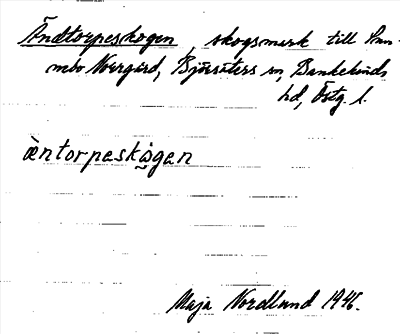 Ändtorpeskogen, skogsmark till Sun-
mbo Norrgård, Björsäters sn, Bankekinds
hd, Östg. l.
äntorpeskògen
Maja Nordlund 1946.